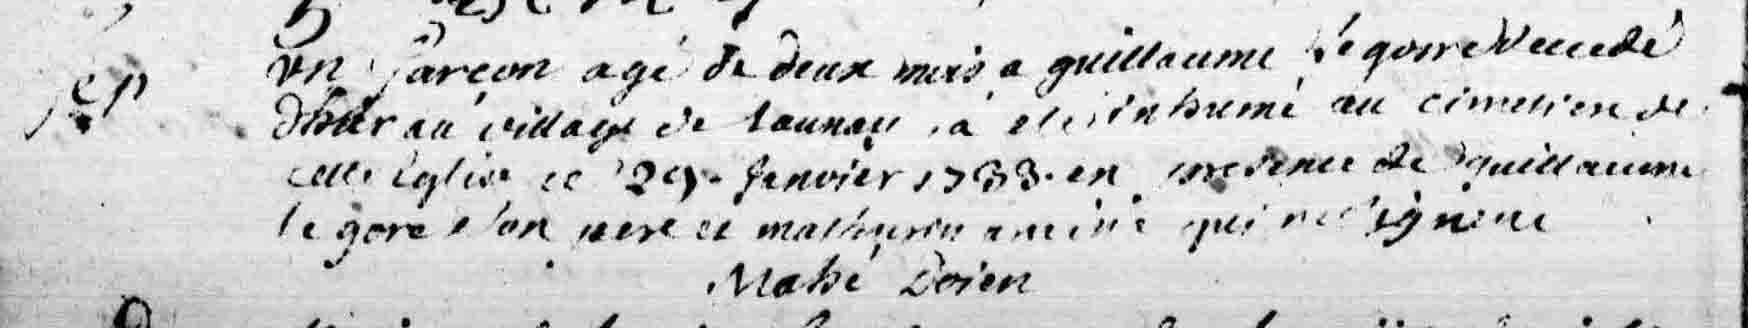 sep
un garcon agé de deux mois a guillaume le gorre decedé
dhier au village de launay, a eté inhumé au cimetiere de
cette eglise ce 29. Janvier 1733. en presence de guillaume
le gore son pere et mathurin qui ne signent
Mahé Doien